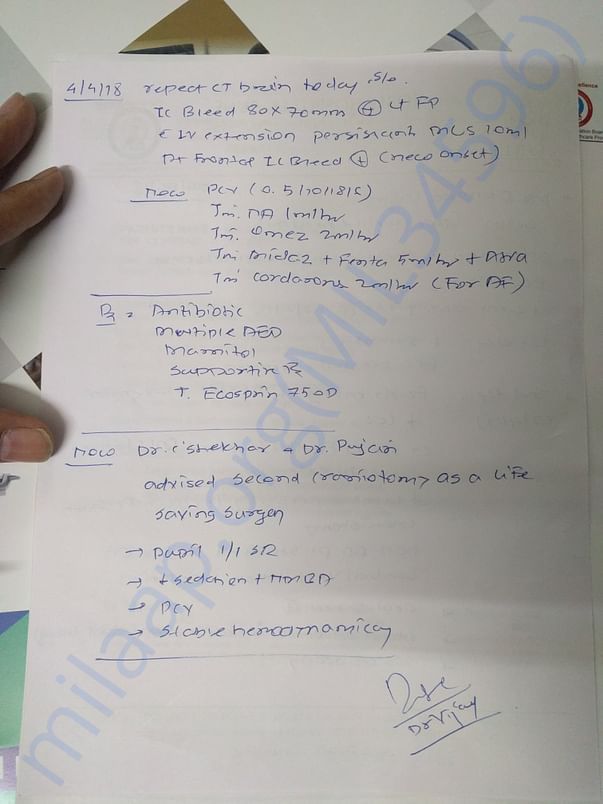 4/4/18 repeat CT brain today s/o.
IC Bleed 80x70mm (+) Lt FP
c IV extension persistent MLS 10ml
Rt Frontal IC Bleed (+) (new onset)
Now PCV (0.5/10/18/5)
Inj. NA 1ml/hr
Inj. Omez 2ml/hr
Inj. Midaz + Fenta 5ml/hr + Atra
Inj Cordarone 2ml/hr (For AF)
Rx Antibiotic
Multiple AED
Mannitol
Supportive Rx
T. Ecosprin 75 OD
Now Dr. C'shekhar & Dr. Pujari
advised second craniotomy as a life
saving surgery
→ pupil 1/1 SR
→ + sedation + NMBA
→ PCV
→ stable hemodynamicay
Dr Vijay
milaap.org(MIL34596)